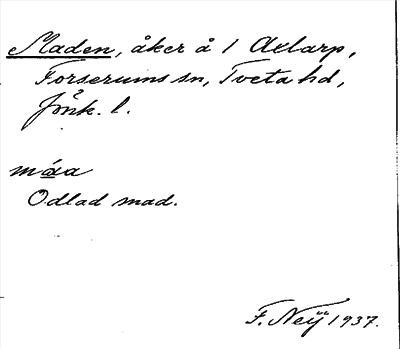 Maden, åker å 1 Axlarp,
Forserums sn, Tveta hd,
Jönk. l.
Odlad mad.
F. Neÿ 1937.